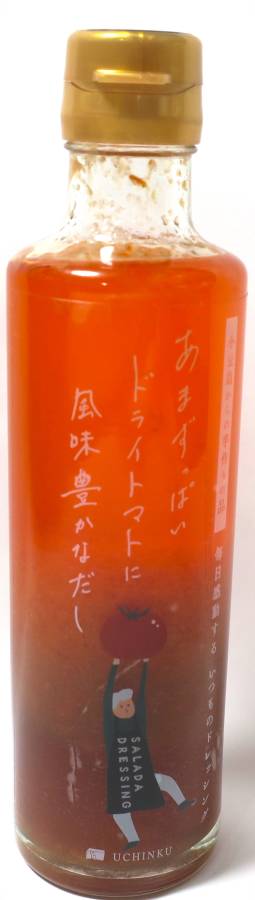 あまずっぱい
ドライトマトに
風味豊かなだし
毎日感動する いつものドレッシング
SALADA
DRESSING
UCHINKU